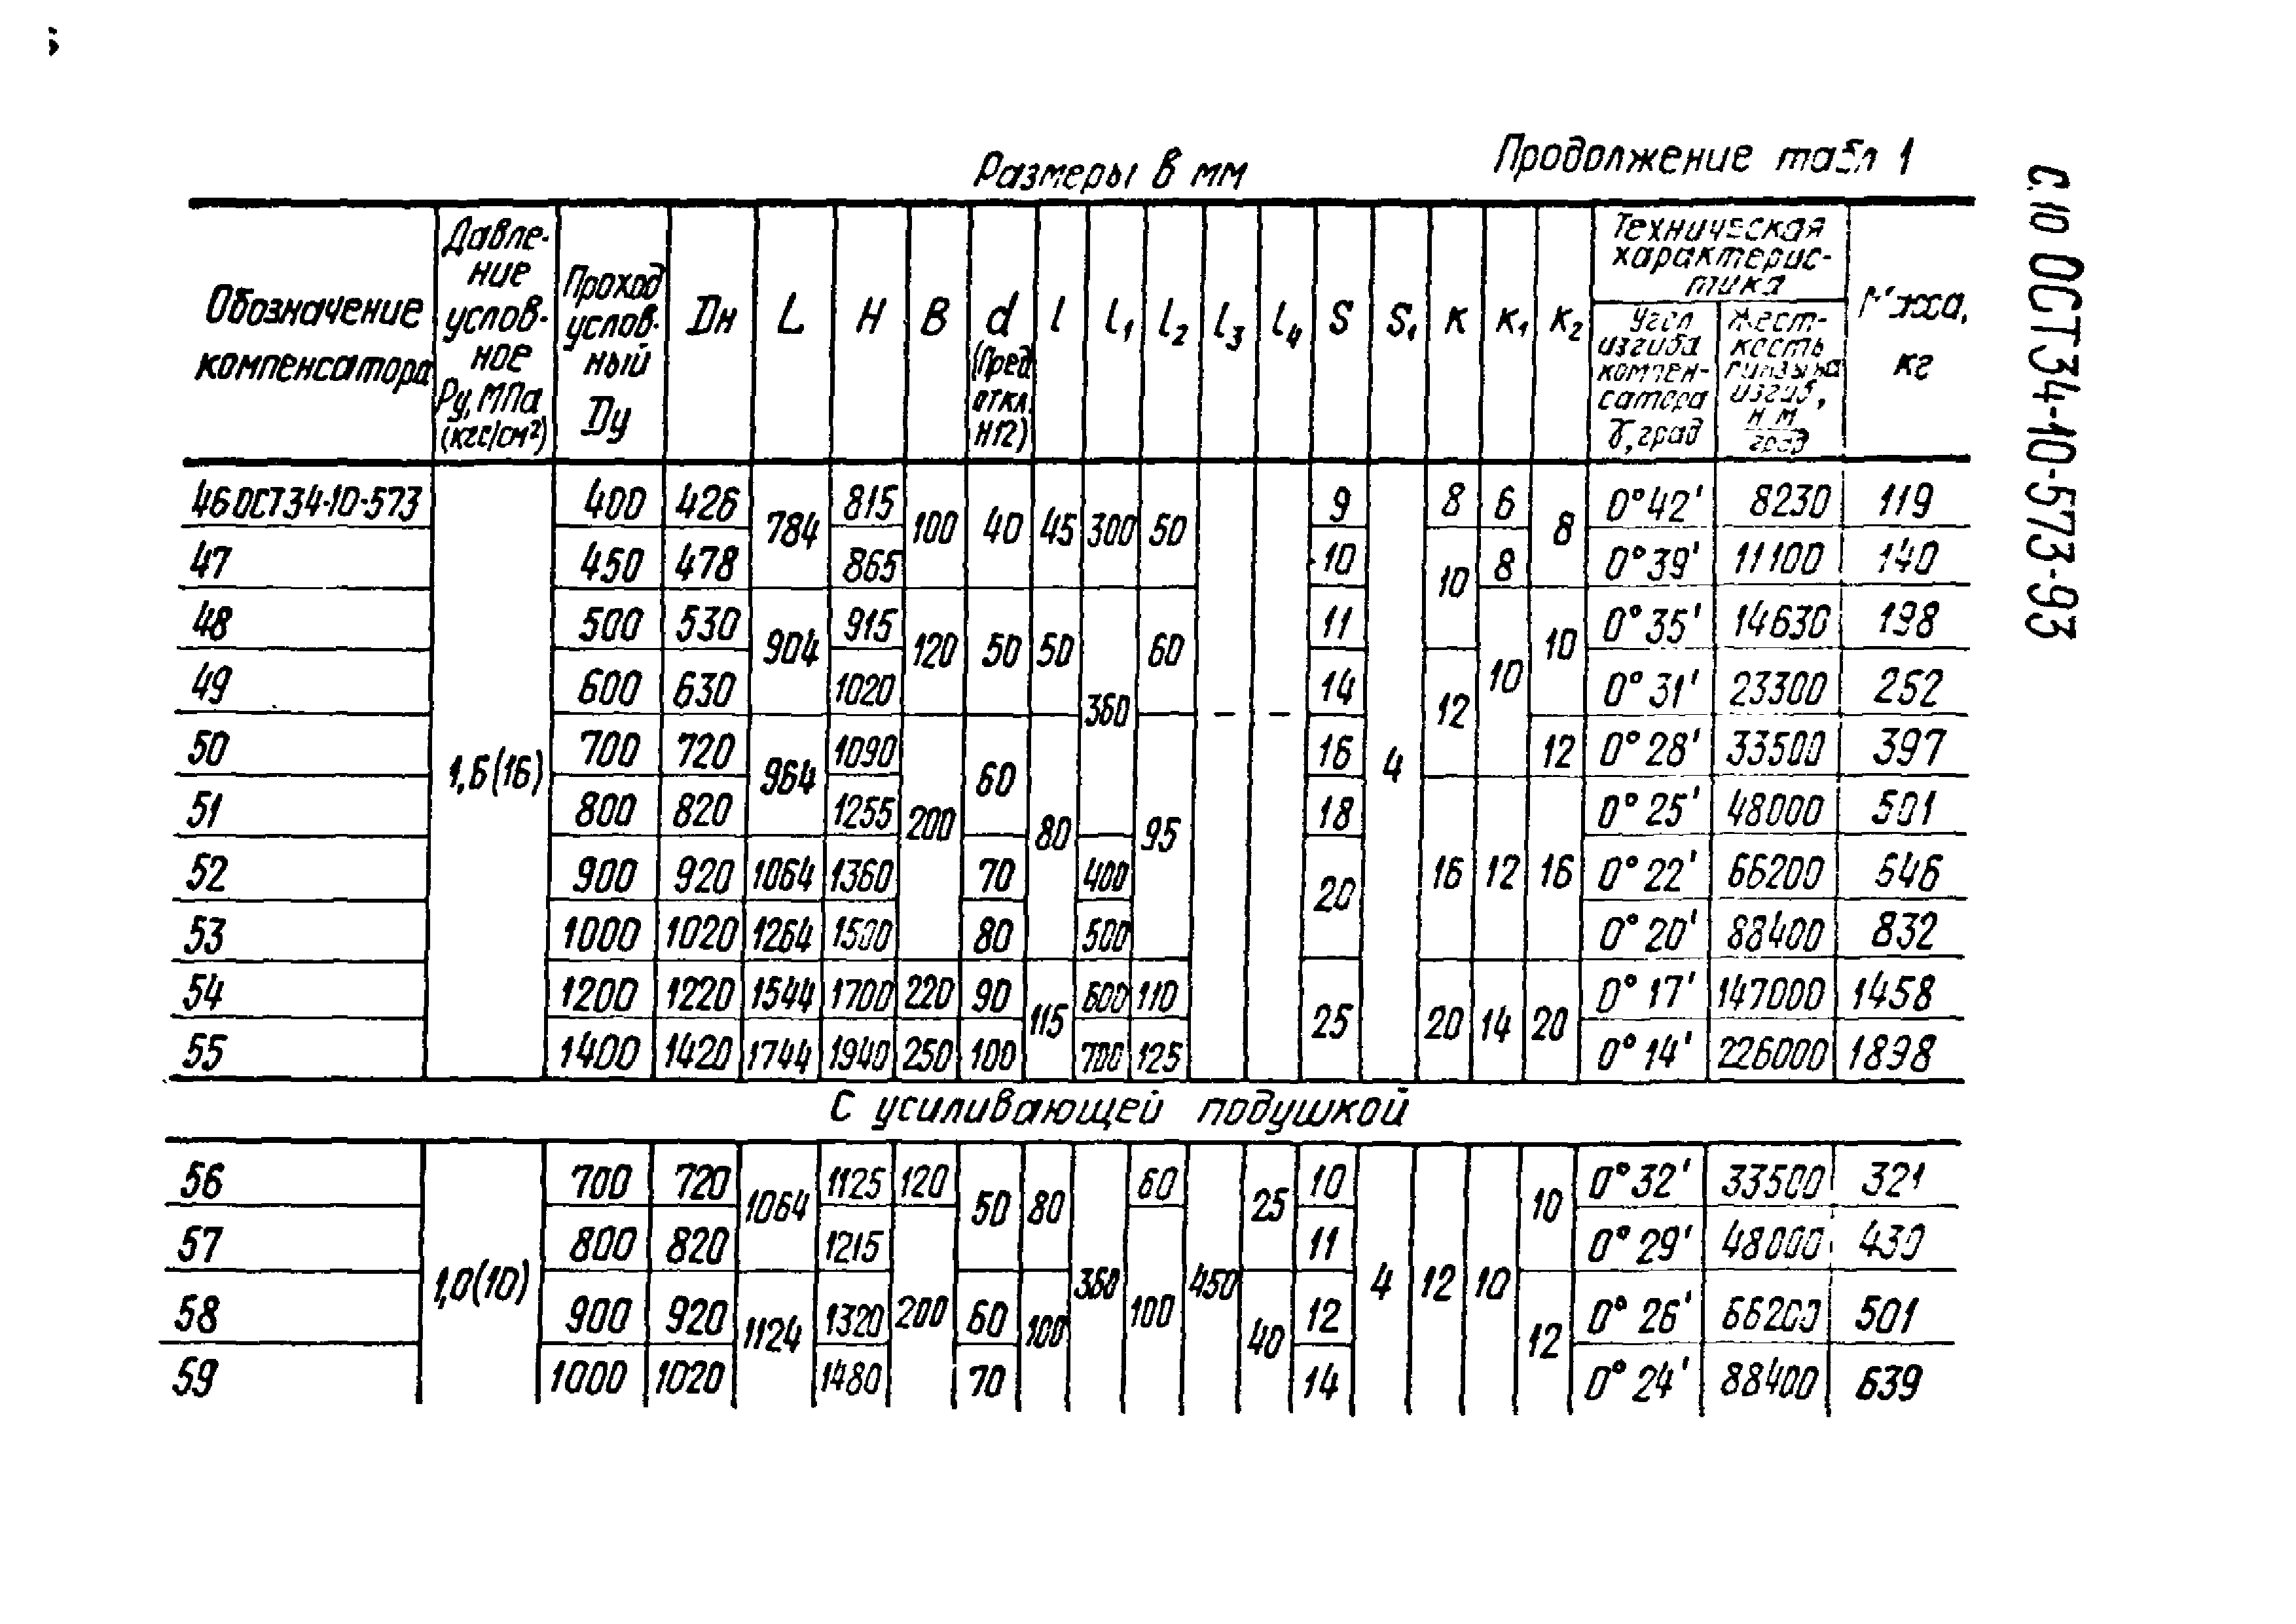 Размеры в мм
Продолжение табл 1
С. 10 ОСТ 34-10-573-93
Обозначение компенсатора
Давле-
ние
услов-
ное
Ру, МПа
(кгс/см²)
Проход
услов-
ный
Dу
Dн
L
H
B
d
(Пред
откл.
H12)
l
l₁
l₂
l₃
l₄
S
S₁
K
K₁
K₂
Техническая
характерис-
тика
Угол
изгиба
компен-
сатора
γ, град
Жест-
кость
изгиб,
Н м
град
Масса,
кг
46 ОСТ 34-10-573 1,6(16) 400 426 784 815 100 40 45 300 50 – – 9 4 8 6 8 0°42' 8230 119
47 450 478 865 10 10 8 0°39' 11100 140
48 500 530 904 915 120 50 50 360 60 11 10 10 0°35' 14630 198
49 600 630 1020 14 12 0°31' 23300 252
50 700 720 964 1090 200 60 80 95 16 12 0°28' 33500 397
51 800 820 1255 18 16 12 16 0°25' 48000 501
52 900 920 1064 1360 70 400 20 0°22' 66200 646
53 1000 1020 1264 1500 80 500 0°20' 88400 832
54 1200 1220 1544 1700 220 90 115 600 110 25 20 14 20 0°17' 147000 1458
55 1400 1420 1744 1940 250 100 700 125 0°14' 226000 1898
С усиливающей подушкой
56 1,0(10) 700 720 1064 1125 120 50 80 360 60 450 25 10 4 12 10 10 0°32' 33500 321
57 800 820 1215 200 100 11 0°29' 48000 430
58 900 920 1124 1320 60 100 40 12 12 0°26' 66200 501
59 1000 1020 1480 70 14 0°24' 88400 639